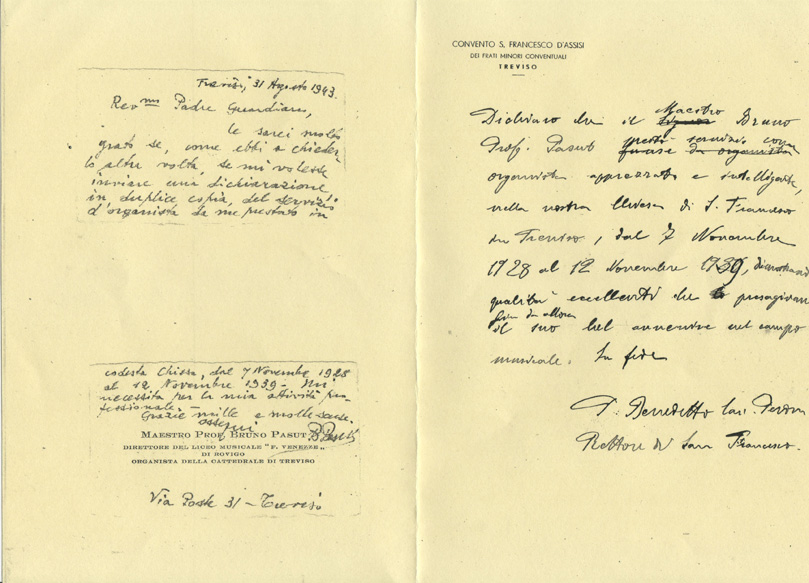 Treviso, 31 Agosto 1943.
Rev.mo Padre Guardiano,
le sarei molto
grato se, come ebbi a chieder-
lo altra volta, se mi volesse
inviare una dichiarazione
in duplice copia, del servizio
d'organista da me prestato in
codesta Chiesa, dal 7 Novembre 1928
al 12 Novembre 1939 - Mi
necessita per la mia attività pro-
fessionale.
Grazie mille e molte scuse.
ossequi
MAESTRO PROF. BRUNO PASUT B. Pasut
DIRETTORE DEL LICEO MUSICALE "F. VENEZZE"
DI ROVIGO
ORGANISTA DELLA CATTEDRALE DI TREVISO
Via Poste 31 - Treviso
CONVENTO S. FRANCESCO D'ASSISI
DEI FRATI MINORI CONVENTUALI
TREVISO
Maestro
Dichiaro che il signor Bruno
prestò servizio come
Prof. Pasut funse da organista
organista apprezzato e intelligente,
nella nostra Chiesa di S. Francesco
in Treviso, dal 7 Novembre
1928 al 12 Novembre 1939,
qualità eccellenti che presagivano
fin da allora
il suo bel avvenire nel campo
musicale. In fede
P. Benedetto
Rettore di San Francesco.